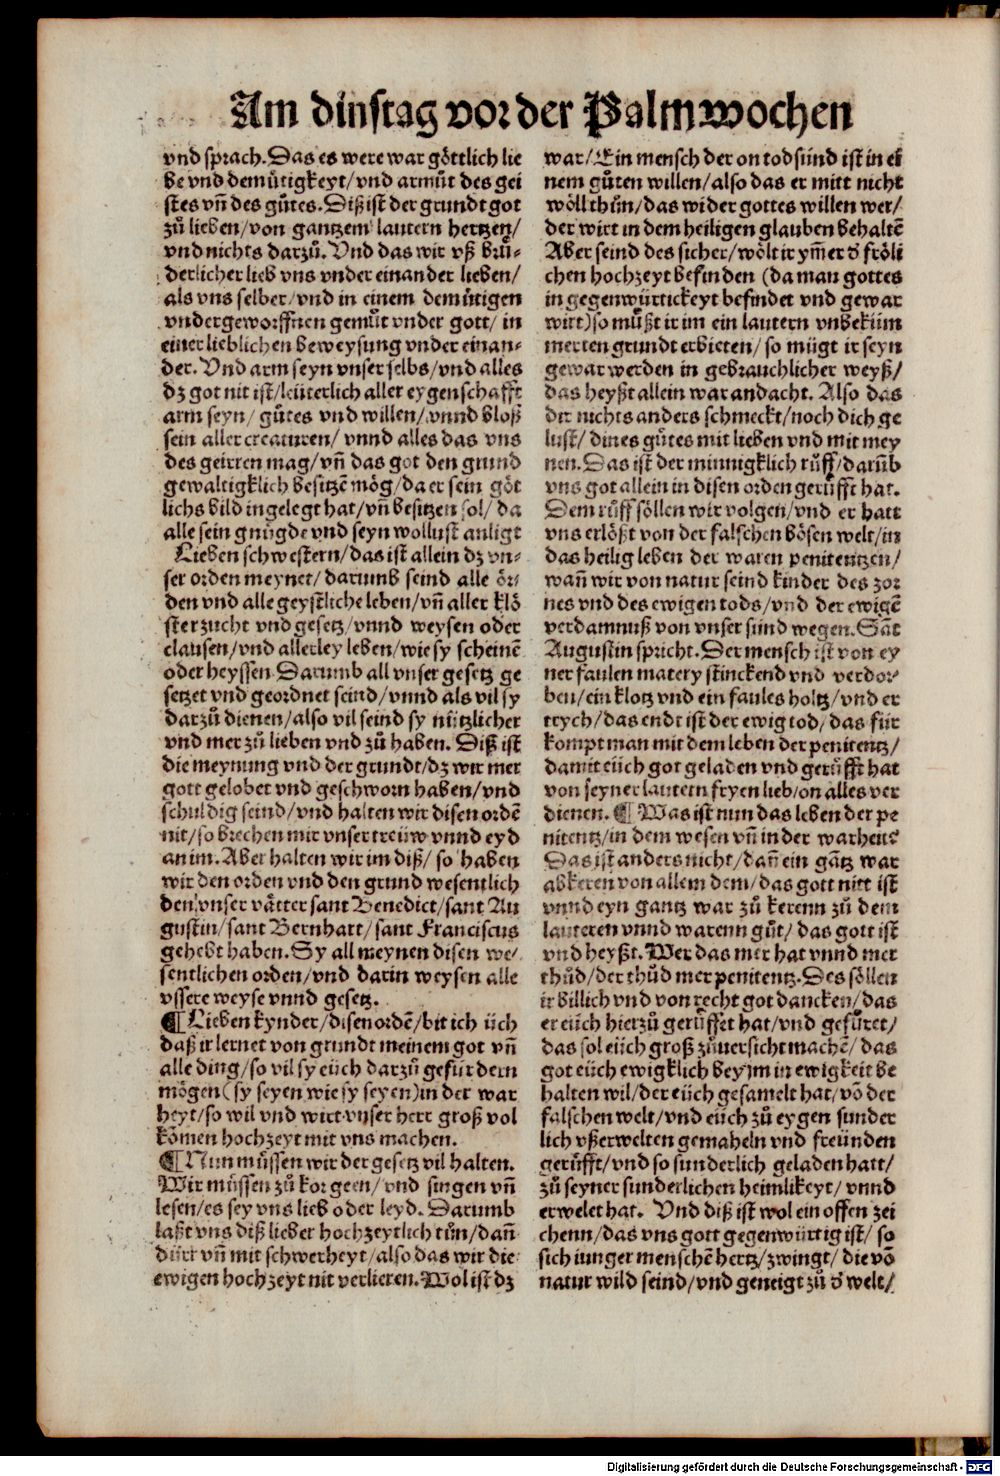 Am dinstag vor der Palmwochen
vnd sprach. Das es were war göttlich lie
be vnd demuͤtigkeyt/ vnd armuͤt des gei
stes vñ des guͤtes. Diß ist der grundt got
zuͤ lieben/ von gantzem lautern hertzen/
vnd nichts darzuͤ. Vnd das wir vß bruͤ-
derlicher lieb vns vnder einander lieben/
als vns selber/ vnd in einem demuͤtigen
vndergeworffnen gemuͤt vnder gott/ in
einer lieblichen beweysung vnder einan-
der. Vnd arm seyn vnser selbs/ vnd alles
dz got nit ist/ leüterlich aller eygenschafft
arm seyn/ guͤtes vnd willen/ vnnd bloß
sein aller creaturen/ vnnd alles das vns
des geirren mag/ vñ das got den grund
gewaltigklich besitzē mög/ da er sein göt
lichs bild ingelegt hat/ vñ besitzen sol/ da
alle sein gnuͤgde vnd seyn wollust anligt
Lieben schwestern/ das ist allein dz vn-
ser orden meynet/ darumb seind alle ör-
den vnd alle geystliche leben/ vñ aller klö
ster zucht vnd gesetz/ vnnd weysen oder
clausen/ vnd allerley leben/ wie sy scheinē
oder heyssen. Darumb all vnser gesetz ge
setzet vnd geordnet seind/ vnnd als vil sy
darzuͤ dienen/ also vil seind sy nützlicher
vnd mer zuͤ lieben vnd zuͤ haben. Diß ist
die meynung vnd der grundt/ dz wir mer
gott gelobet vnd geschworn haben/ vnd
schuldig seind/ vnd halten wir disen ordē
nit/ so brechen mir vnser treüw vnnd eyd
an im. Aber halten wir im diß/ so haben
wir den orden vnd den grund wesentlich
den vnser vätter sant Benedict/ sant Au
gustin/ sant Bernhart/ sant Franciscus
gehebt haben. Sy all meynen disen we/
sentlichen orden/ vnd darin weysen alle
vssere weyse vnnd gesetz.
¶ Lieben kynder/ disen ordē/ bit ich üch
daß ir lernet von grundt meinem got vñ
alle ding/ so vil sy eüch darzuͤ gefürdern
mögen (sy seyen wie sy seyen) in der war
heyt/ so wil vnd wirt vnser herr groß vol
kōmen hochzeyt mit vns machen.
¶ Nun muͤssen wir der gesetz vil halten.
Wir muͤssen zuͤ kor geen/ vnd singen vñ
lesen/ es sey vns lieb oder leyd. Darumb
laßt vns diß lieber hochzeytlich tuͤn/ dañ
dürr vñ mit schwerheyt/ also das wir die
ewigen hochzeyt nit verlieren. Wol ist dz
war/ Ein mensch der on todsünd ist in ei
nem guͤten willen/ also das er mitt nicht
wöll thuͤn/ das wider gottes willen wer/
der wirt in dem heiligen glauben behaltē
Aber seind des sicher/ wölt ir ym̄er d' fröli
chen hochzeyt befinden (da man gottes
in gegenwürtickeyt befindet vnd gewar
wirt) so muͤßt ir im ein lautern vnbeküm
merten grundt erbieten/ so mügt ir seyn
gewar werden in gebrauchlicher weyß/
das heyßt allein war andacht. Also das
dir nichts anders schmeckt/ noch dich ge
lust/ dines guͤtes mit lieben vnd mit mey
nen. Das ist der minnigklich ruͤff/ darüb
vns got allein in disen orden geruͤfft hat.
Dem ruͤff söllen wir volgen/ vnd er hatt
vns erlößt von der falschen bösen welt/ in
das heilig leben der waren penitentzen/
wañ wir von natur seind kinder des zor
nes vnd des ewigen tods/ vnd der ewigē
verdamnuß von vnser sünd wegen. Sāt
Augustin spricht. Der mensch ist von ey
ner faulen matery stinckend vnd verdor-
ben/ ein klotz vnd ein faules holtz/ vnd er
trych/ das endt ist der ewig tod/ das für
kompt man mit dem leben der penitentz/
damit eüch got geladen vnd geruͤfft hat
von seyner lautern fryen lieb/ on alles ver
dienen. ¶ Was ist nun das leben der pe
nitentz/ in dem wesen vñ in der warheit?
Das ist anders nicht/ dañ ein gātz war
abkeren von allem dem/ das gott nitt ist
vnnd eyn gantz war zuͤ kerenn zuͤ dem
lauteren vnnd warenn guͤt/ das gott ist
vnd heyßt. Wer das mer hat vnnd mer
thuͤd/ der thuͤd mer penitentz. Des söllen
ir billich vnd von recht got dancken/ das
er eüch hierzuͤ geruͤffet hat/ vnd gefuͤret/
das sol eüch groß zuͤuersicht machē/ das
got eüch ewigklich bey jm in ewigkeit be
halten wil/ der eüch gesamelt hat/ vō der
falschen welt/ vnd eüch zuͤ eygen sunder
lich vßerwelten gemaheln vnd freünden
geruͤfft/ vnd so sunderlich geladen hatt/
zuͤ seyner sunderlichen heimlikeyt/ vnnd
erwelet hat. Vnd diß ist wol ein offen zei
chenn/ das vns gott gegenwürtig ist/ so
sich iunger menschē hertz/ zwingt/ die vō
natur wild seind/ vnd geneigt zuͤ d' welt/
Digitalisierung gefördert durch die Deutsche Forschungsgemeinschaft - DFG